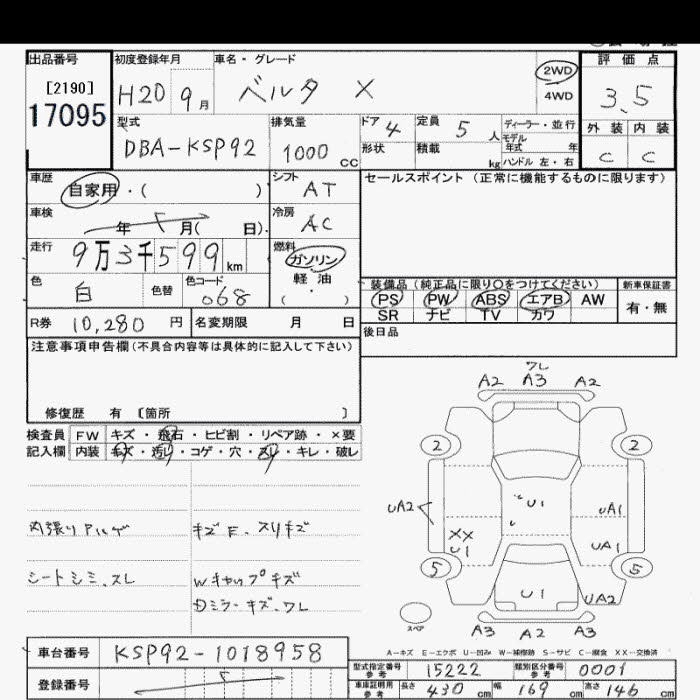 出品番号 初度登録年月 車名・グレード 2WD 評価点
[2190] H20 9月 ベルタ X 4WD 3.5
17095
型式 排気量 ドア 4 定員 5人 ディーラー・並行 外装 内装
モデル
DBA-KSP92 1000cc 形状 積載 kg 年式 年 C C
ハンドル 左・右
車歴 自家用・( ) シフト AT セールスポイント (正常に機能するものに限ります)
車検 年 月( 日). 冷房 AC
走行 9万3千599km 燃料 ガソリン
軽油
( ・ )
色 白 色替 色コード 068 装備品 (純正品に限り○をつけてください) 新車保証書
PS PW ABS エアB AW 有・無
SR ナビ TV カワ
R券 10,280円 名変期限 月 日 後日品
注意事項申告欄(不具合内容等は具体的に記入して下さい)
修復歴 有 〔箇所 〕
検査員 FW キズ・飛石・ヒビ割・リペア跡・×要
記入欄 内装 キズ・汚レ・コゲ・穴・スレ・キレ・破レ
ワレ
A2 A3 A2
2 2
UA2 U1 UA1
XX
U1 UA1
5 5
U1 UA2
スペア
A3 A2 A3
内張りアルゲ キズE、スリキズ
シートシミ、スレ Wキャップキズ
Dミラーキズ、ワレ
A-キズ E-エクボ U-凹み W-補修跡 S-サビ C-腐食 XX-交換済
車台番号 KSP92-1018958 型式指定番号 参考 15222 類別区分番号 参考 0001
登録番号 車庫証明用 参考 長さ 430cm 幅 169cm 高さ 146cm